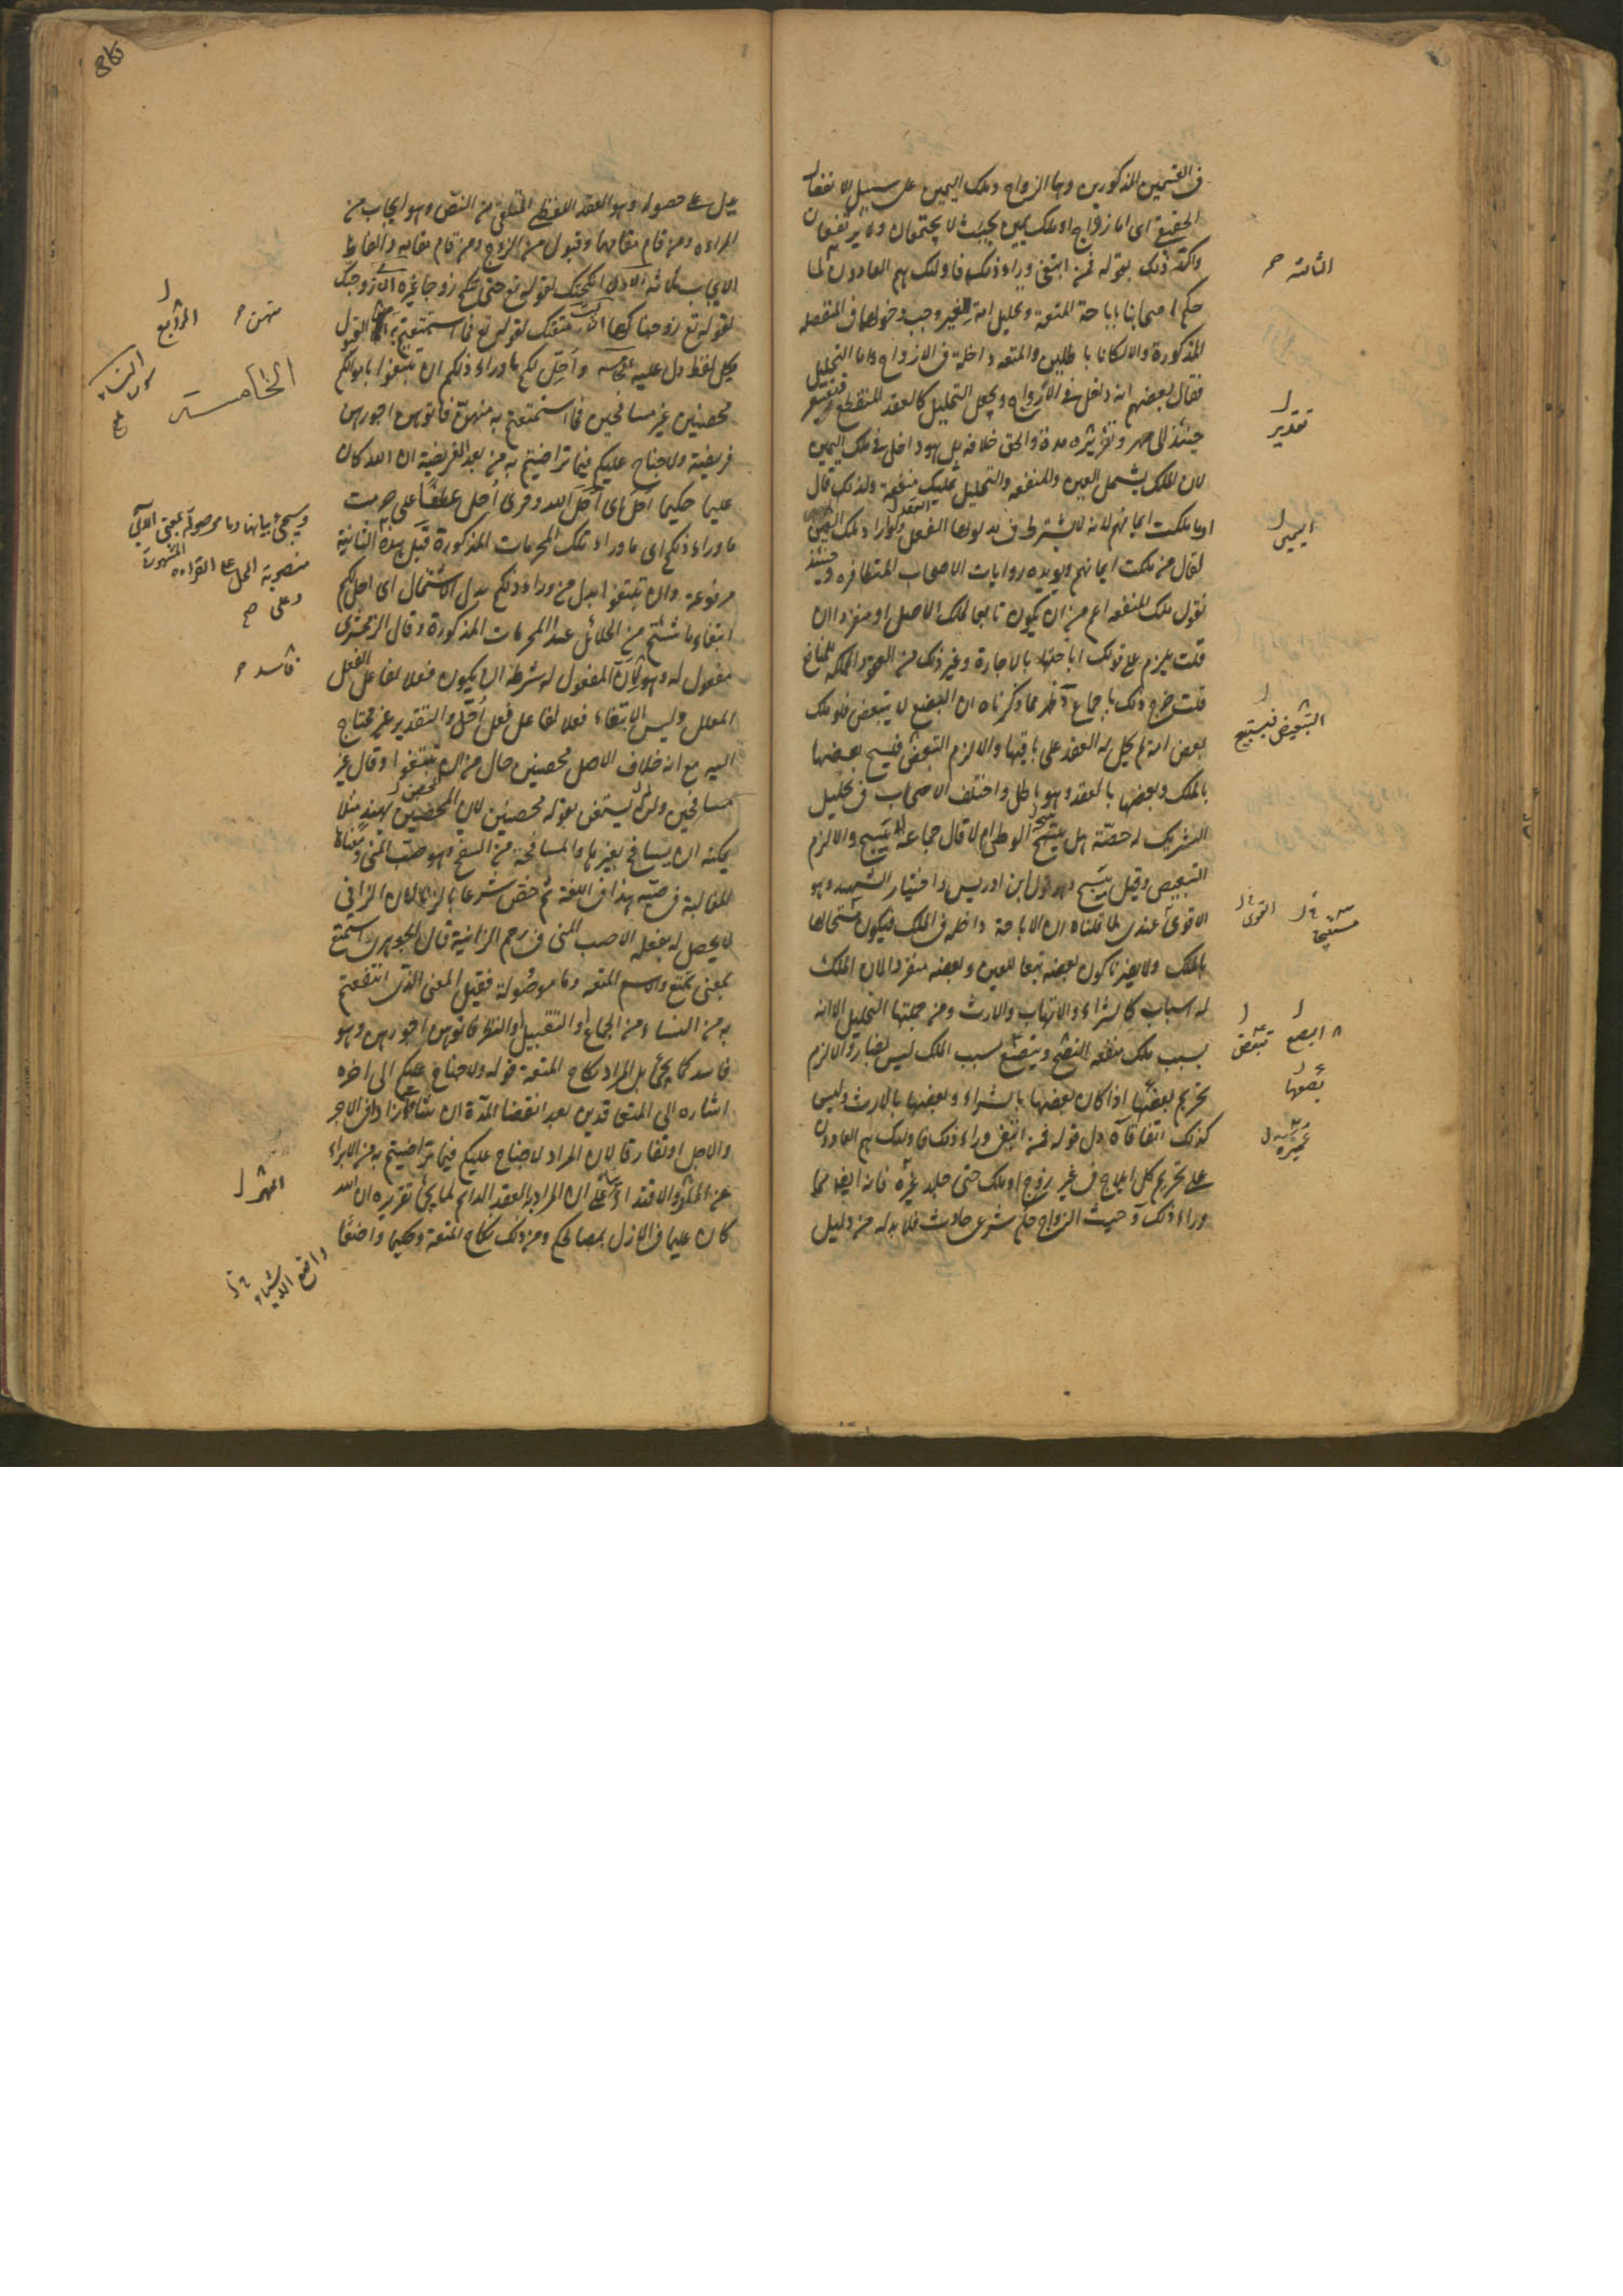 في القسمين المذكورين وهما الزواج وملك اليمين على سبيل الانفصال
الحقيقي اي اما زواج او ملك يمين بحيث لا يجتمعان ولا يرتفعان
واكد ذلك بقوله فمن ابتغى وراء ذلك فاولئك هم العادون لما
حكم اصحابنا باباحة المتعة وتحليل امة الغير وجب دخولهما في المنفصلة
المذكورة والا لكانا باطلين والمتعة داخلة في الازواج واما التحليل
فقال بعضهم انه داخل في الازواج ويجعل التحليل كالعقد المنقطع فيفتقر
حينئذ الى مهر وتقرير مدة والحق خلافه بل هو داخل في ملك اليمين
لان الملك يشمل العين والمنفعة والتحليل تمليك منفعة ولذلك قال
او ما ملكت ايمانهم لانه لا يشترط في مدلولها العقل ولو اراد ملك العين
لقال من ملكت ايمانهم ويؤيده روايات الاصحاب المتظافره وحينئذ
نقول ملك المنفعه اعم من ان يكون تابعا لملك الاصل او منفردا ان
قلت يلزم على قولك اباحتها بالاجارة وغير ذلك من العقود المملكه للمنافع
قلت خرج ذلك باجماع آ ظهر مما ذكرناه ان البضع لا يتبعض فلو ملك
بعض امة لم يحل له العقد على باقيها والا لزم التبعيض فيستبيح بعضها
بالملك وبعضها بالعقد وهو باطل واختلف الاصحاب في تحليل
الشريك له حصته هل يستبيح الوطي ام لا قال جماعة لا يستبيح والا لزم
التبعيض وقيل يستبيح وهو قول ابن ادريس واختيار الشهيد وهو
الاقوى عندي لما قلناه ان الاباحة داخلة في الملك فيكون مستحلها
بالملك ولا يضرنا كون بعضه تبعا للعين وبعضه منفردا لان الملك
له اسباب كالشراء والاتهاب والارث ومن جملتها التحليل الا انه
بسبب ملك منفعة البضع سبب الملك ليس بضار والا لزم
تحريم بعضها اذا كان بعضها بالشراء وبعضها بالارث وليس
كذلك اتفاقا آ دل قوله فمن ابتغى وراء ذلك فاولئك هم العادون
على تحريم كل ايلاج في غير زوج او ملك حتى جلد عميرة فانه ايضا مما
وراء ذلك آ حيث الزواج حكم شرعي حادث فلا بد له من دليل
الثالثة
تقدير
اليمين
التبعيض فيستبيح
القوى
البضع
بضعها
عميرة
يدل على حصوله وهو العقد اللفظي المتلقى من النص وهو ايجاب من
المراة ومن قام مقامها وقبول من الزوج ومن قام مقامه والفاظ
الايجاب ثلاثة الاول انكحتك لقوله تع حتى تنكح زوجا غيره آ زوجتك
لقوله تع زوجناكها آ متعتك لقوله تع فما استمتعتم به القبول
بكل لفظ دل عليه الخامسة واحل لكم ما وراء ذلكم ان تبتغوا باموالكم
محصنين غير مسافحين فما استمتعتم به منهن فاتوهن اجورهن
فريضة ولا جناح عليكم فيما تراضيتم به من بعد الفريضة ان الله كان
عليما حكيما احل اي احل الله وقرئ احل عطفا على حرمت
ما وراء ذلكم اي ما وراء تلك المحرمات المذكورة قبل هذه الثانية
مرفوعة وان تبتغوا بدل من وراء ذلكم بدل الاشتمال اي احل لكم
ابتغاء ما شئتم من الحلائل عدا المحرمات المذكورة وقال الزمخشري
مفعول له وهو لان المفعول له شرطه ان يكون فعلا لفاعل الفعل
المعلل وليس الابتغاء فعلا لفاعل فعل احل والتقدير غير محتاج
اليه مع انه خلاف الاصل محصنين حال من ان تبتغوا وقال غير
مسافحين ولم يستغن بقوله محصنين لان المحصن بهند مثلا
يمكنه ان يسافح بغيرها والمسافحة من السفح وهو صب المني ومعناها
المغالبة في صبه هذا في اللغة ثم خص شرعا بالزنا لان الزاني
لا يحصل له بفعله الا صب المني في رحم الزانية قال الجوهري استمتع
بمعنى تمتع والاسم المتعة وما موصولة فقيل المعنى الذي انتفعتم
به من النساء من الجماع او التقبيل او النظر فاتوهن اجورهن وهو
فاسد كما يجئ بل المراد نكاح المتعة قوله ولا جناح عليكم الى اخره
اشارة الى المتعاقدين بعد انقضا المدة ان شاءا زادا في الاجر
والاجل او تفارقا لان المراد لا جناح عليكم فيما تراضيتم به من الابراء
عن المهر والافتداء على ان المراد به العقد الدائم لما يجئ تقريره ان الله
كان عليما في الازل بمصالحكم ومن ذلك نكاح المتعة وحكيما واضعا
منهن
الرابع
سورة النساء
الخامسة
وسيجئ بيانها وما موصولة بمعنى اللاتي
منصوبة المحل على القراءة المشهورة
وعلى
فاسد
المهر
واضع الاشياء